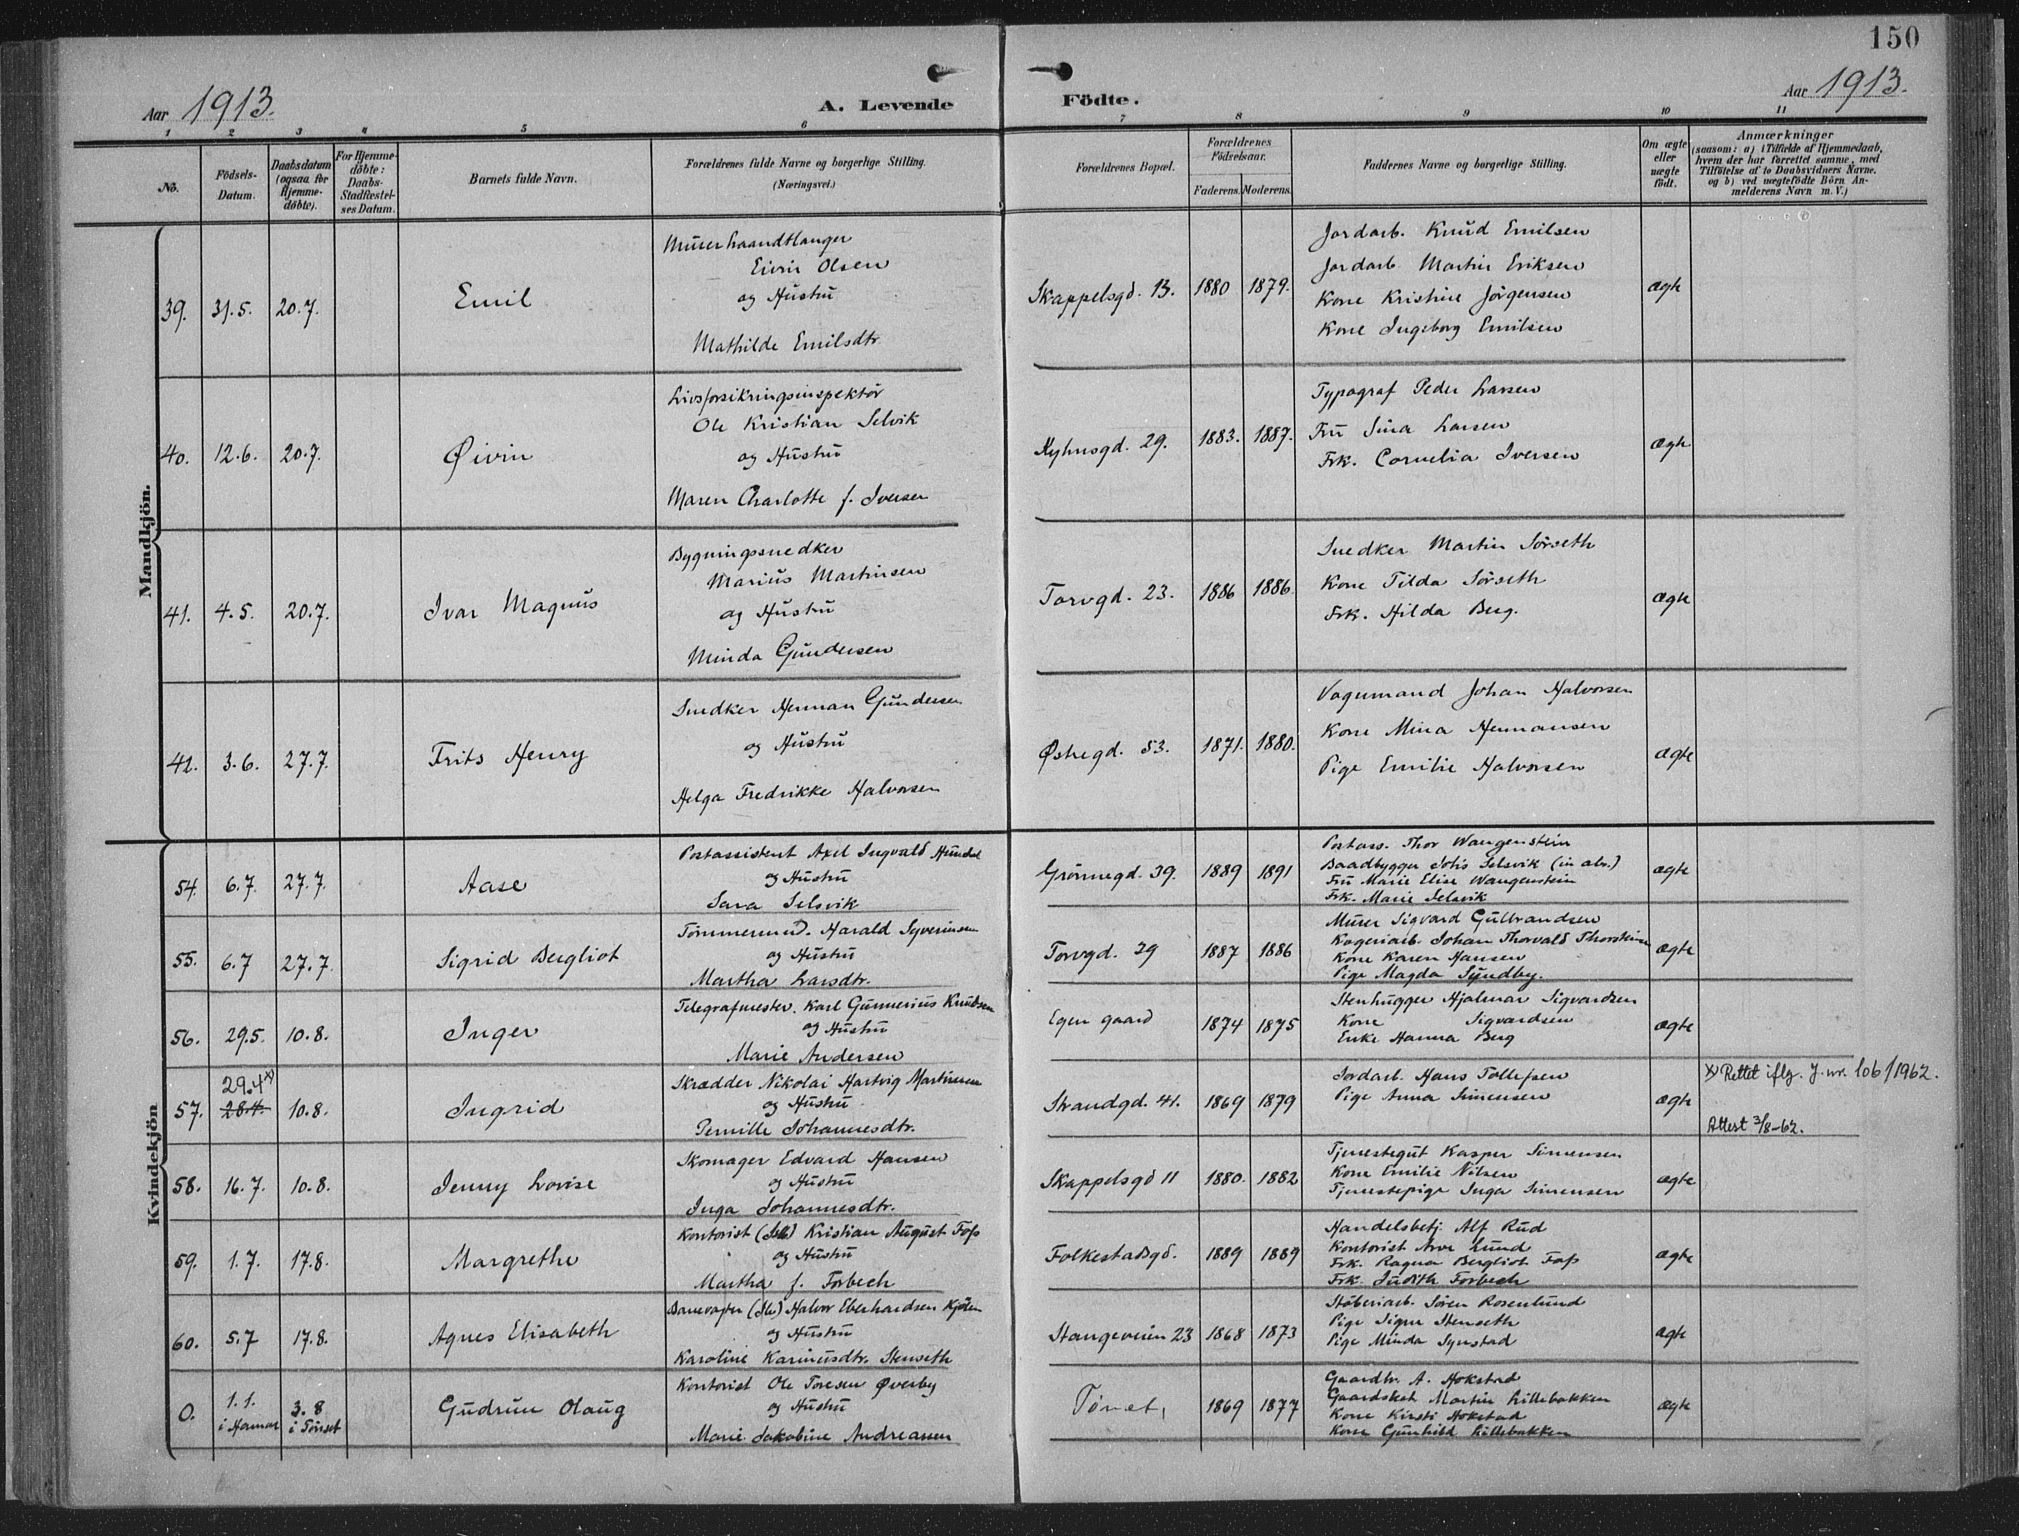 150
Aar 1913.
A. Levende Födte.
Aar 1913.
1 2 3 4 5 6 7 8 9 10 11
No.
Födsels-Datum.
Daabsdatum (ogsaa for Hjemme-döbte).
For Hjemme-döbte: Daabs-Stadfæstel-ses Datum.
Barnets fulde Navn.
Forældrenes fulde Navne og borgerlige Stilling.
(Næringsvei.)
Forældrenes Bopæl.
Forældrenes Födselsaar.
Faderens. Moderens.
Faddernes Navne og borgerlige Stilling.
Om ægte eller uægte födt.
Anmærkninger
(saasom: a) i Tilfælde af Hjemmedaab,
hvem der har forrettet samme, med
Tilföielse af to Daabsvidners Navne.
og b) ved uægtefödte Börn An-
melderens Navn m. V.)
Mandkjön.
39. 31.5. 20.7. Emil
Murerhaandtlanger
Eivin Olsen
og Hustru
Mathilde Emilsdtr.
Skappelsgd. 13. 1880 1879.
Jordarb. Knud Emilsen
Jordarb. Martin Eriksen
Kone Kristine Jörgensen
Kone Ingeborg Emilsen
ægte
40. 12.6. 20.7. Øivin
Livsforsikringsinspektör
Ole Kristian Selvik
og Hustru
Maren Charlotte f. Iversen
Kyhnsgd. 29. 1883. 1887.
Typograf Peder Larsen
Fru Sina Larsen
Frk. Cornelia Iversen
ægte
41. 4.5. 20.7. Ivar Magnus
Bygningssnedker
Marius Martinsen
og Hustru
Minda Gundersen
Torvgd. 23. 1886 1886.
Snedker Martin Sörseth
Kone Tilda Sörseth
Frk. Hilda Berg.
ægte
42. 3.6. 27.7. Frits Henry
Snedker Herman Gundersen
og Hustru
Helga Fredrikke Halvorsen
Østregd. 53. 1871. 1880.
Vognmand Johan Halvorsen
Kone Mina Hermansen
Pige Emilie Halvorsen
ægte
Kvindekjön
54. 6.7. 27.7. Aase
Postassistent Axel Ingvald
og Hustru
Sara Selsvik
Grönnegd. 39. 1889 1891
Postass. Thor Wangenstein
Baadbygger Johs Selsvik (in abs.)
Fru Marie Elise Wangenstein
Frk. Marie Selsvik
ægte
55. 6.7 27.7. Sigrid Bergliot
Tömmermd. Harald Syverinsen
og Hustru
Martha Larsdtr.
Torvgd. 29 1887 1886
Murer Sigvard Gulbrandsen
Johan Thorvald
Kone Karen Hansen
Pige Magda Syndby.
ægte
56. 29.5. 10.8. Inger
Telegrafmester. Karl Gunnerius Knudsen
og Hustru
Marie Andersen
Egen gaard 1874 1875
Stenhugger Hjalmar Sigvardsen
Kone Sigvardsen
Enke Hanna Berg
ægte
57. 29.4 x) 28.4. 10.8. Ingrid
Skrædder Nikolai Hartvig Martinsen
og Hustru
Pernille Johannesdtr.
Strandgd. 41. 1869 1879
Jordarb. Hans Tollefsen
Pige Anna Simensen
ægte
x) Rettet iflg. J.nr. 106/1962.
Attest 3/8-62.
58. 16.7. 10.8. Jenny Lovise
Skomager Edvard Hansen
og Hustru
Inga Johannesdtr.
Skappelsgd 11 1880. 1882
Tjenestegut Kasper Simensen
Kone Emilie Nilsen
Tjenestepige Inga Simensen
ægte
59. 1.7. 17.8. Margrethe
Kontorist Kristian August Foss
og Hustru
Martha f. Forbech
Folkestadsgd. 1889 1889
Handelsbetj. Alf Rud
Kontorist Arve Lund
Frk. Ragna Bergliot Foss
Frk. Judith Forbech
ægte
60. 5.7 17.8. Agnes Elisabeth
Banevogter Halvor Eberhardsen Kjölen
og Hustru
Karoline Karinusdtr. Stenseth
Stangeveien 23 1868 1873
Stöberiarb. Sören Rosenlund
Pige Signe Stenseth
Pige Minda Synstad
ægte
0. 1.1. i Hamar 3.8 i Tönset Gudrun Olaug
Kontorist Ole Toresen Øverby
og Hustru
Marie Jakobine Andreassen
Tönset, 1869 1877
Gaardbr. A. Hokstad
Gaardsksk Martin Lillebakken
Kone Kirsti Hokstad
Kone Gunhild Lillebakken
ægte